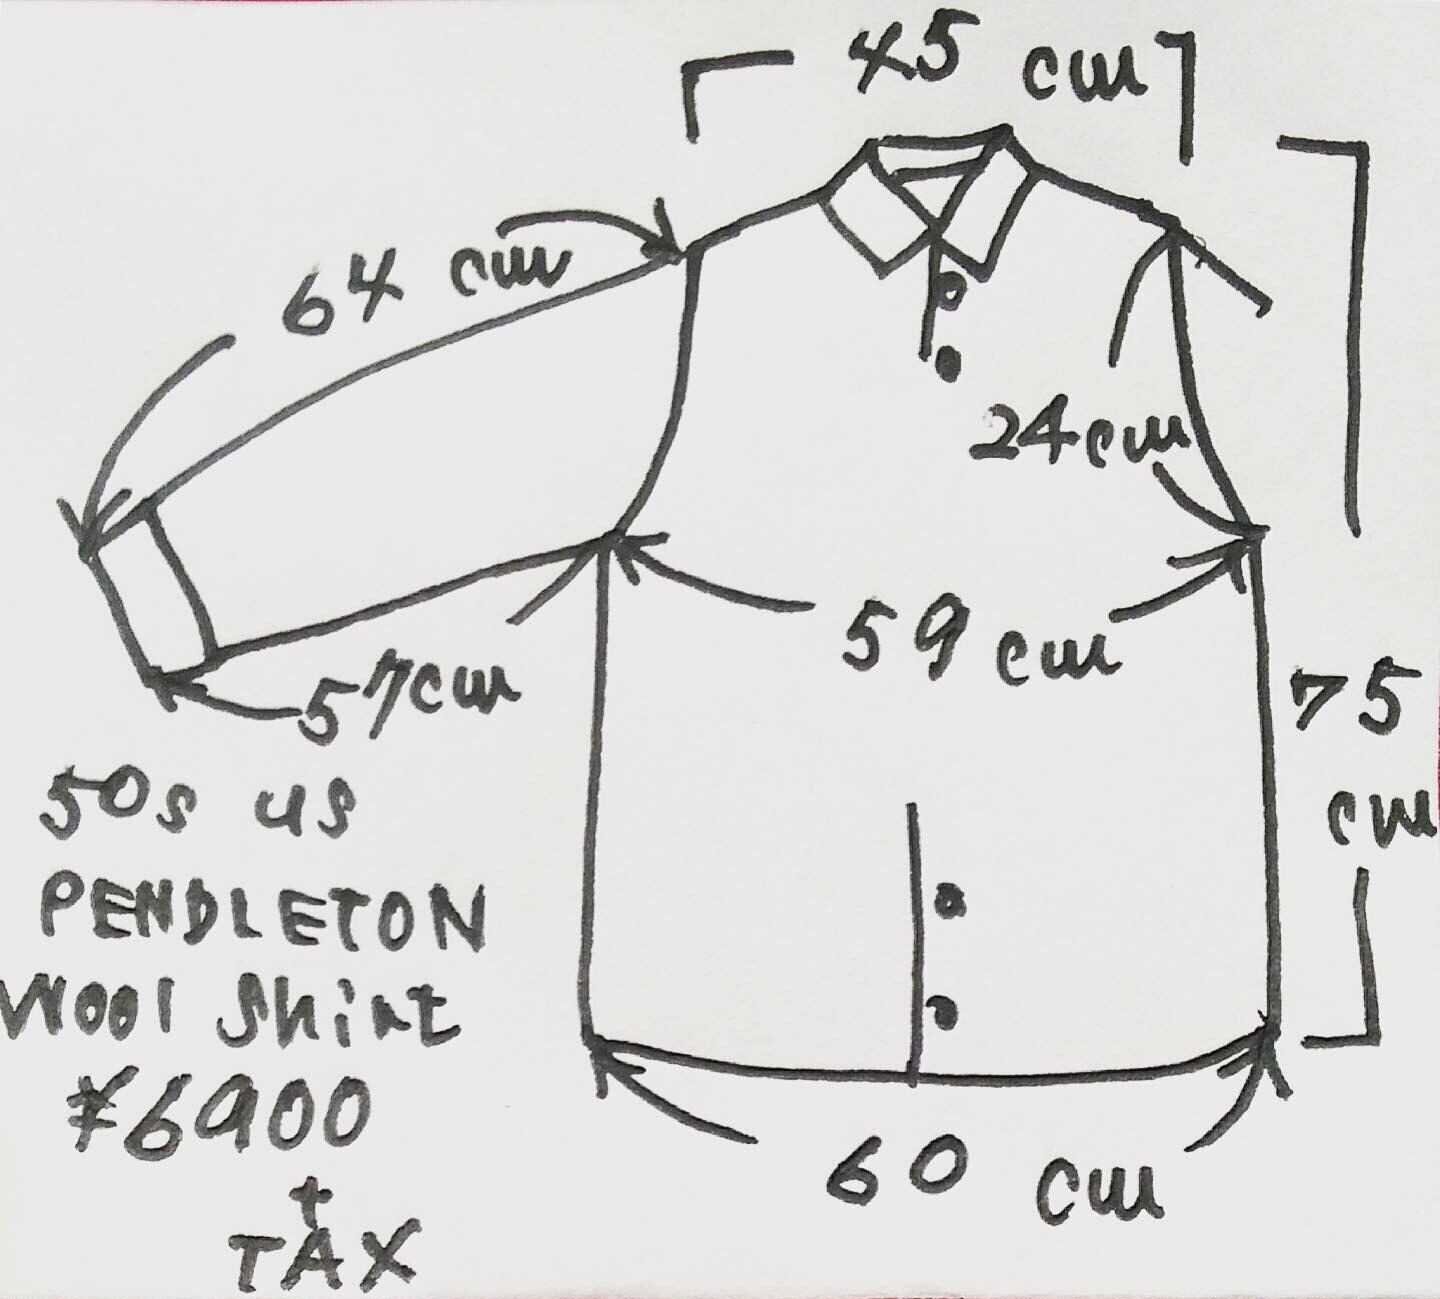 45 cm
64 cm
24cm
59 cm
57cm
75
cm
50s us
PENDLETON
Wool Shirt
¥6900
+
TAX
60 cm